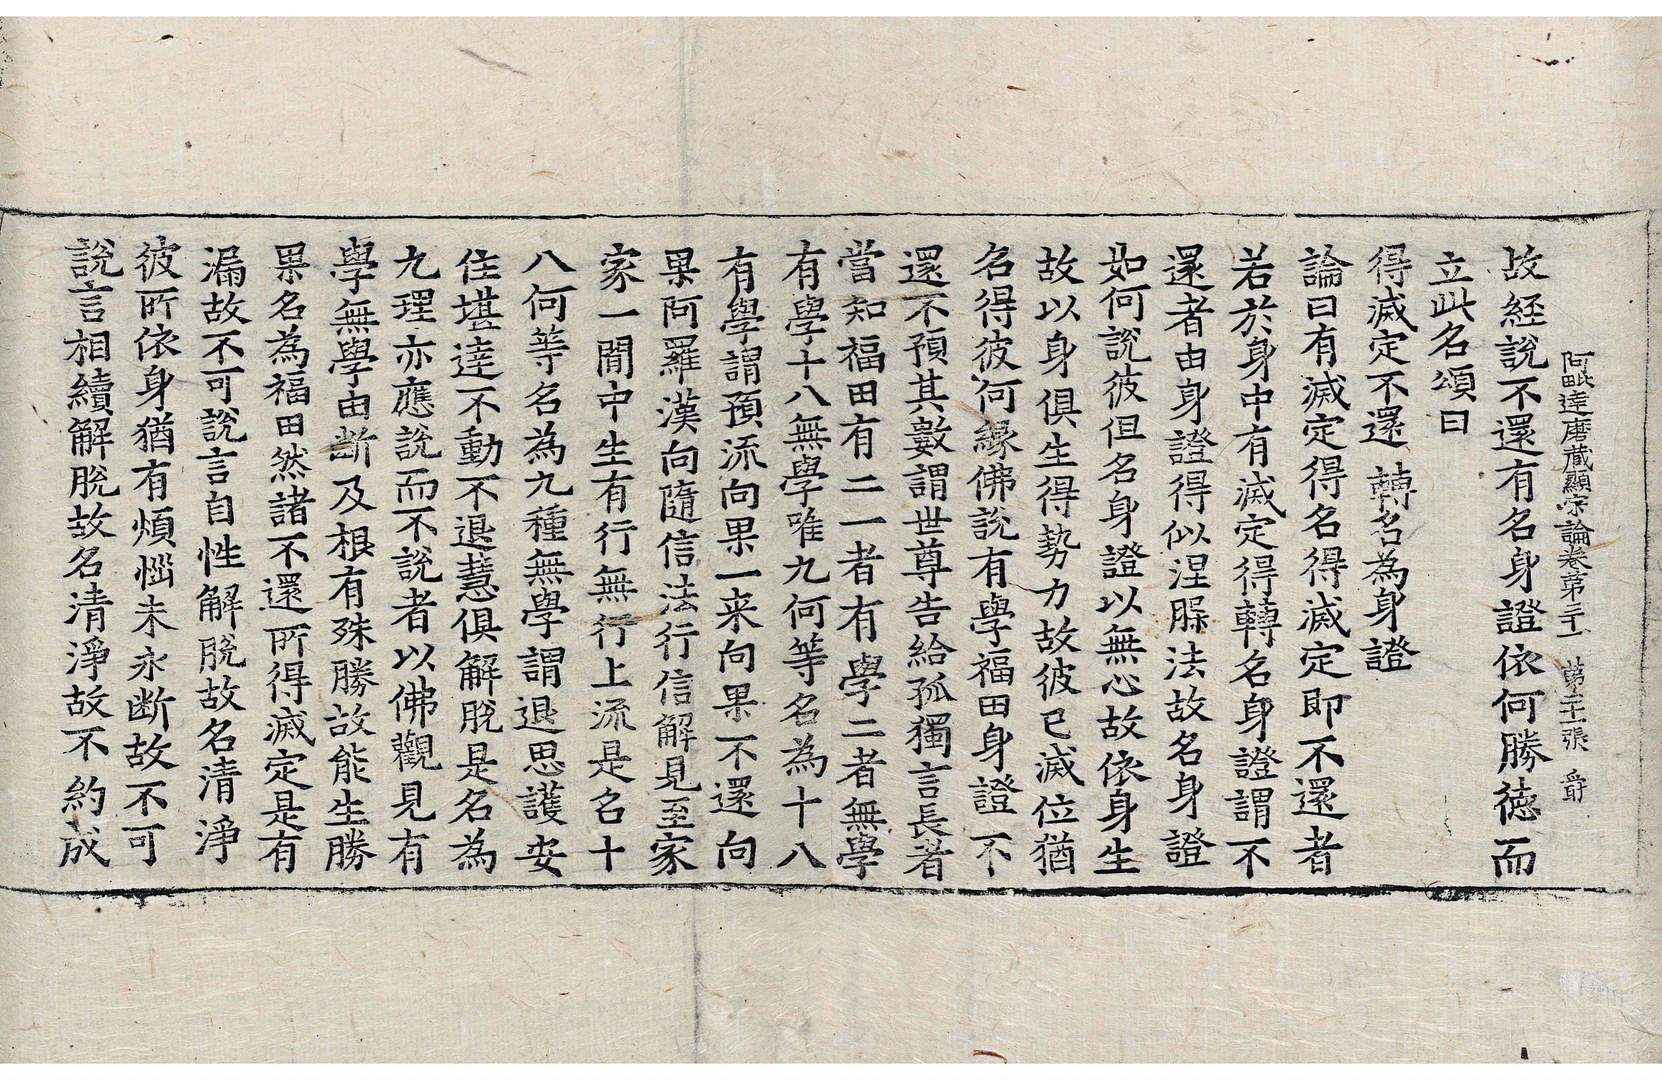 阿毗達磨藏顯宗論卷第三十一 第二十一張 爵
故經說不還有名身證依何勝德而
立此名頌曰
得滅定不還 轉名為身證
論曰有滅定得名得滅定即不還者
若於身中有滅定得轉名身證謂不
還者由身證得似涅槃法故名身證
如何說彼但名身證以無心故依身生
故以身俱生得勢力故彼已滅位猶
名得彼何緣佛說有學福田身證不
還不預其數謂世尊告給孤獨言長者
當知福田有二一者有學二者無學
有學十八無學唯九何等名為十八
有學謂預流向果一来向果不還向
果阿羅漢向隨信法行信解見至家
家一間中生有行無行上流是名十
八何等名為九種無學謂退思護安
住堪達不動不退慧俱解脫是名為
九理亦應說而不說者以佛觀見有
學無學由断及根有殊勝故能生勝
果名為福田然諸不還所得滅定是有
漏故不可說言自性解脫故名清淨
彼所依身猶有煩惱未永断故不可
說言相續解脫故名清淨故不約成